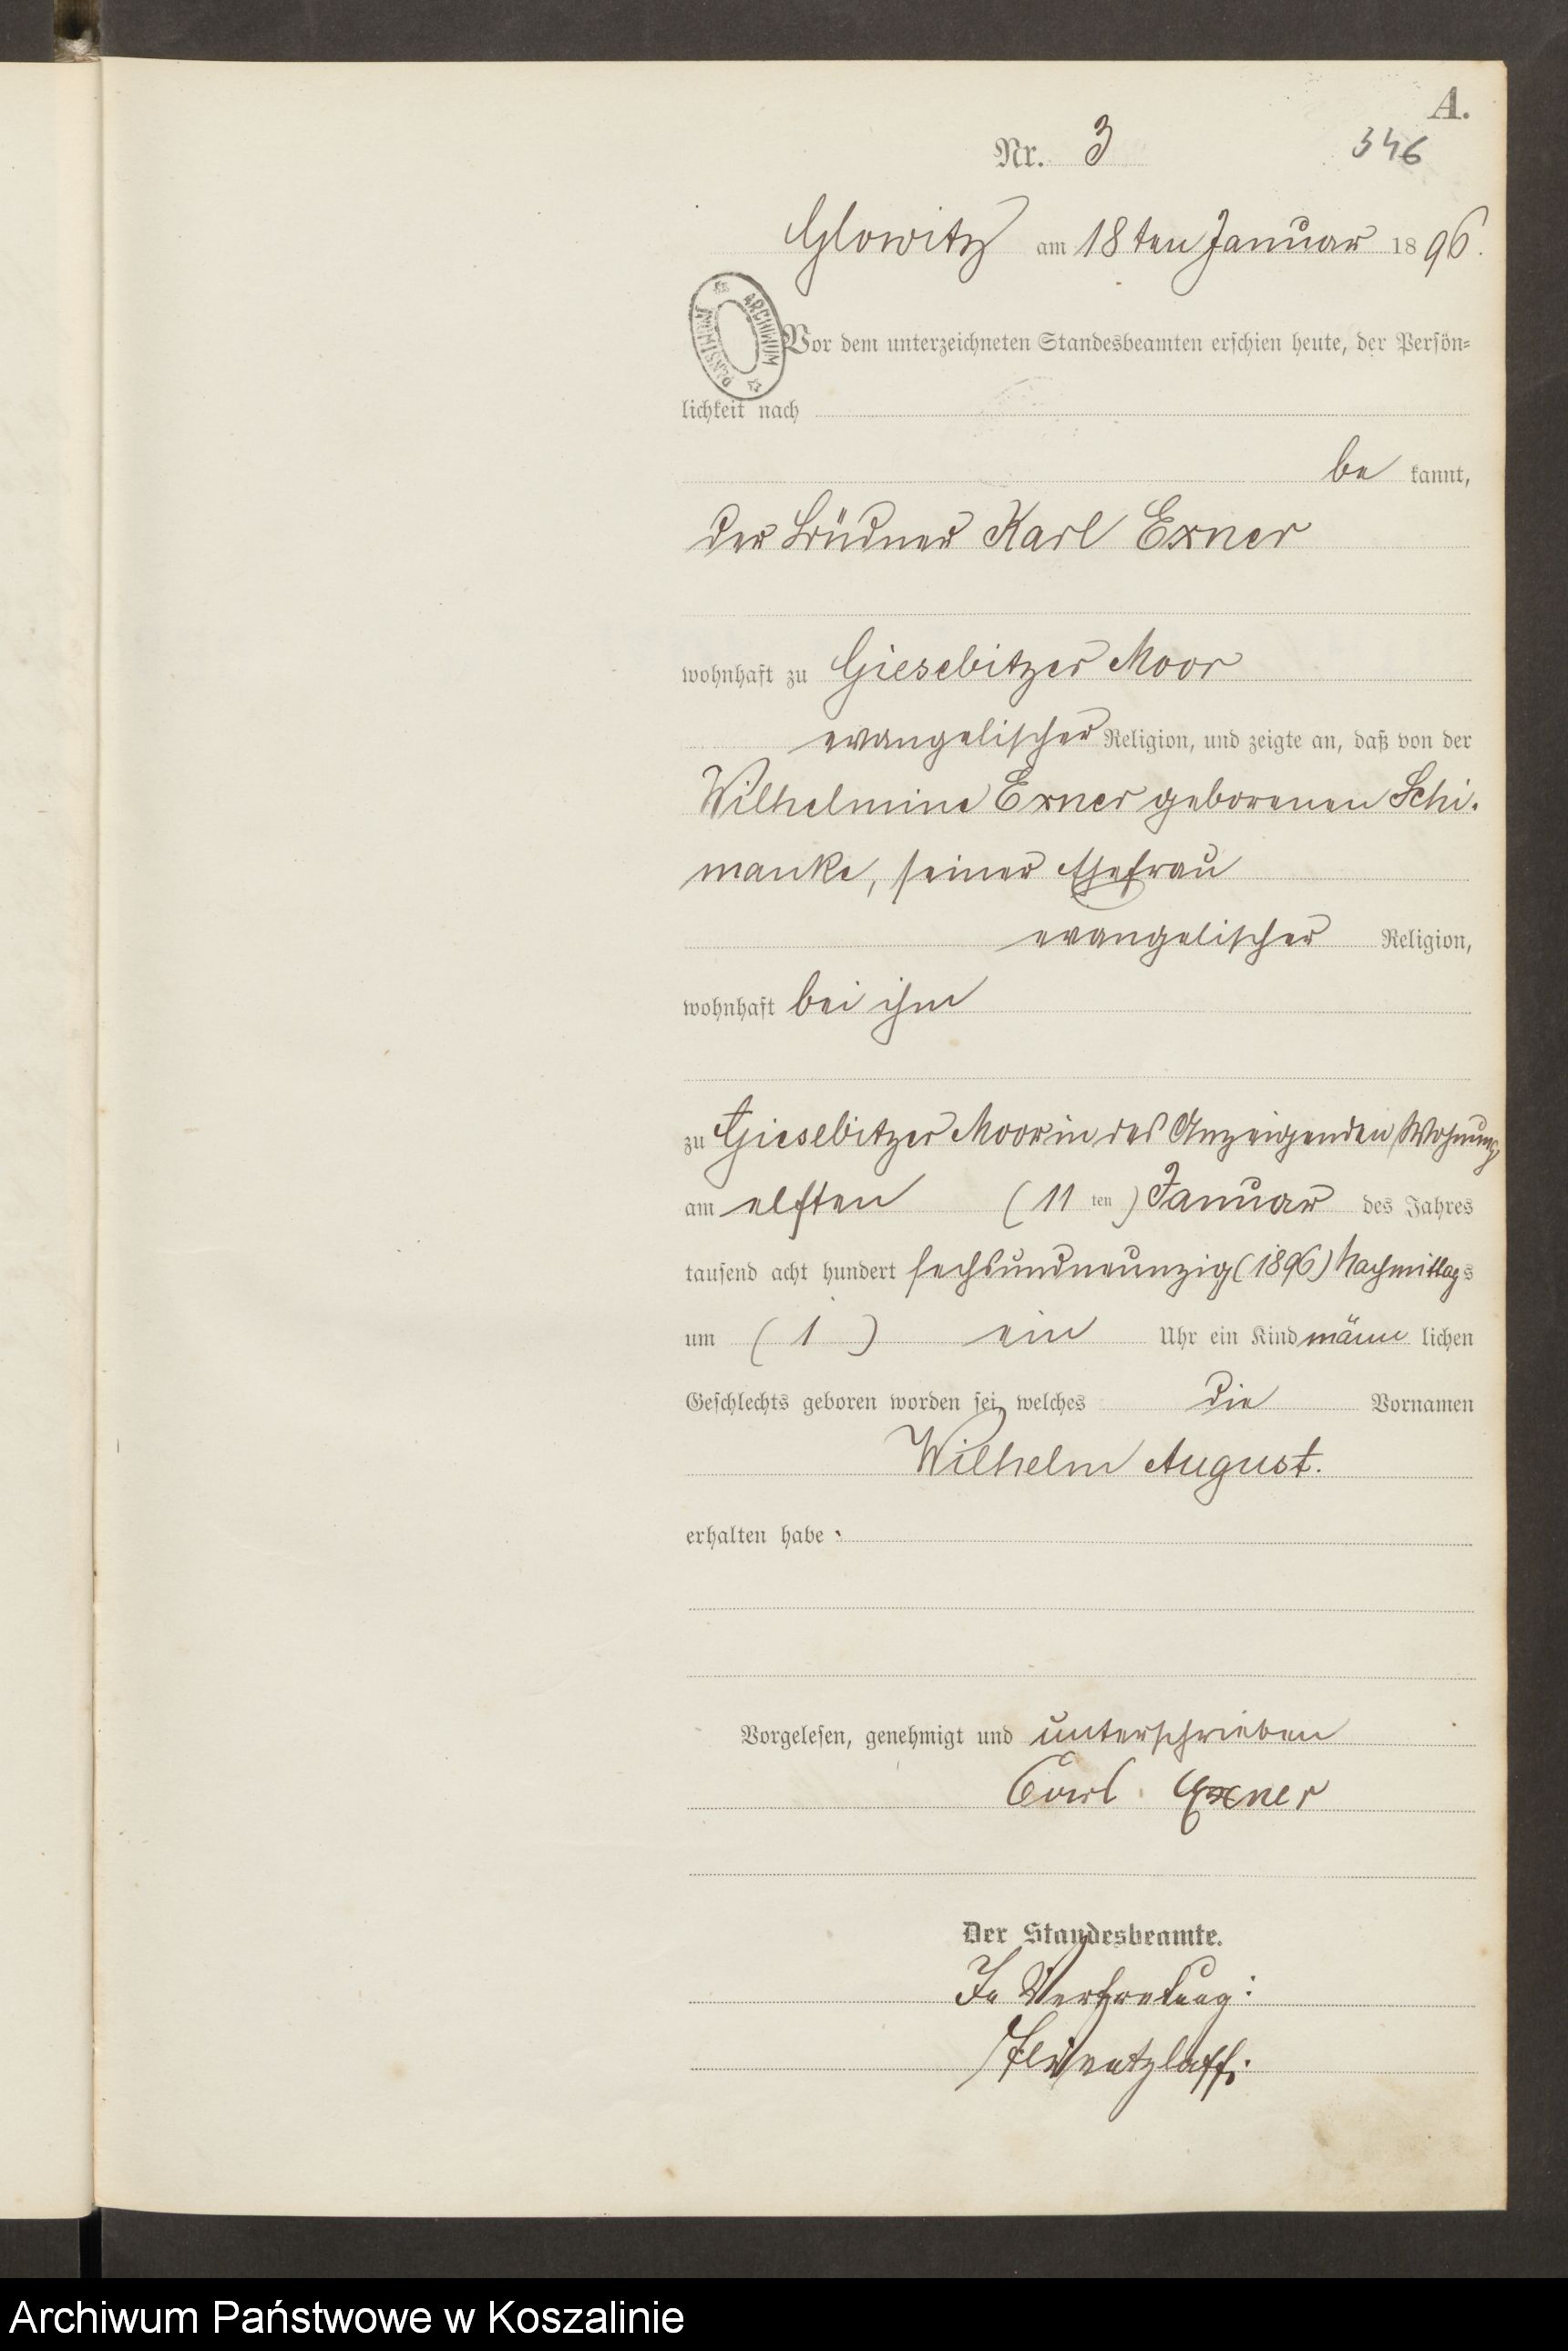 A.
Nr. 3
346
Glowitz am 18ten Januar 1896.
ARCHIWUM PAŃSTWOWE
Vor dem unterzeichneten Standesbeamten erschien heute, der Persön-
lichkeit nach
be kannt,
der Büdner Karl Exner
wohnhaft zu Giesebitzer Moor
evangelischer Religion, und zeigte an, daß von der
Wilhelmine Exner geborenen Schi-
manke, seiner Ehefrau
evangelischer Religion,
wohnhaft bei ihm
zu Giesebitzer Moor in des Anzeigenden Wohnung
am elften (11 ten) Januar des Jahres
tausend acht hundert sechsundneunzig (1896) Nachmittags
um (1) ein Uhr ein Kind männ lichen
Geschlechts geboren worden sei, welches die Vornamen
Wilhelm August.
erhalten habe
Vorgelesen, genehmigt und unterschrieben
Carl Exner
Der Standesbeamte.
In Vertretung:
Archiwum Państwowe w Koszalinie